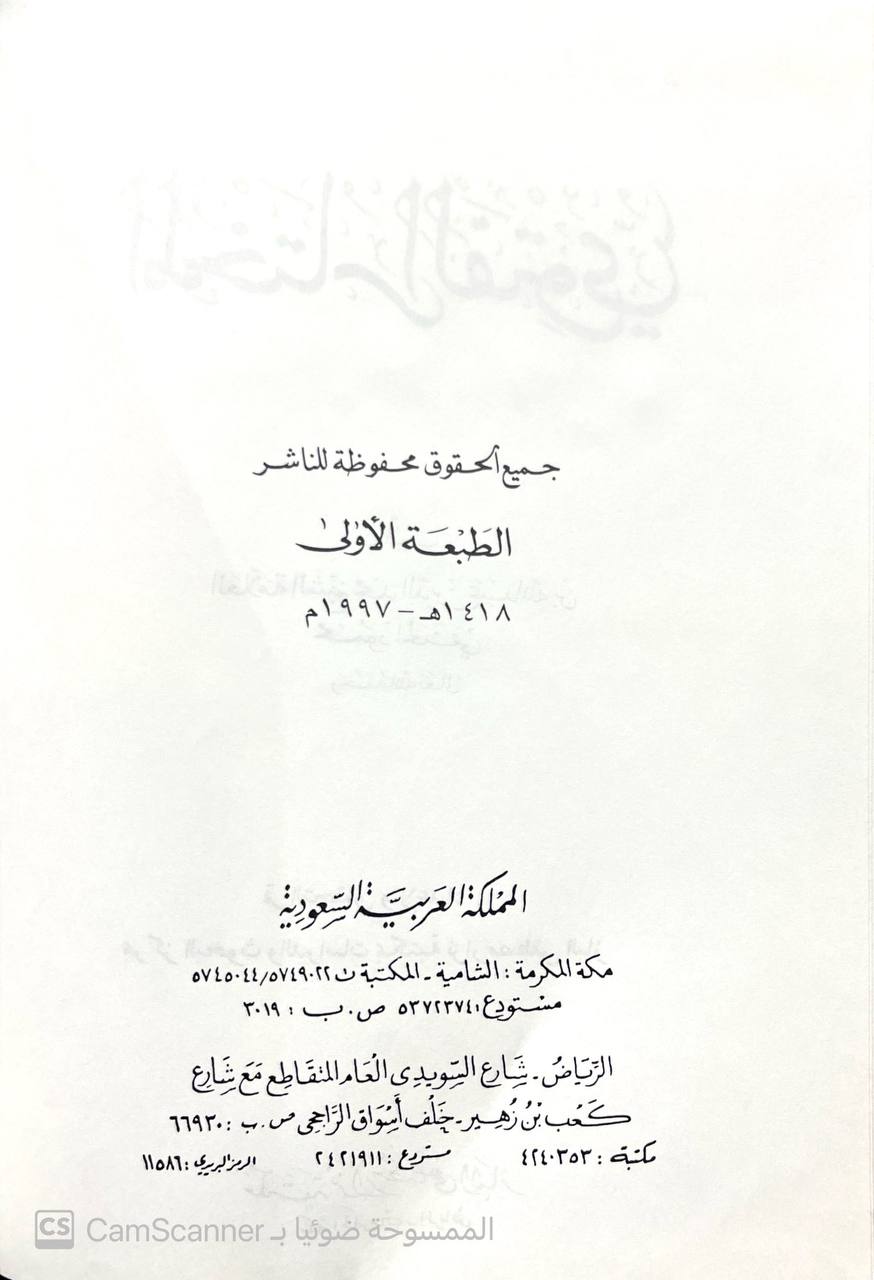 جميع الحقوق محفوظة للناشر
الطَبْعَة الأولى
١٤١٨هـ - ١٩٩٧م
المملكة العَربيَّة السِّعوديَة
مكة المكرمة : الشامية - المكتبة ت ٥٧٤٥٠٤٤/٥٧٤٩٠٢٢
مستودع : ٥٣٧٢٣٧٤ ص . ب : ٣٠١٩
الرِّيَاضُ - شَارِع السِّويدِى الْعَام المتقَاطِع مَعَ شَارِع
كَعْب بْن زُهَير - خَلْف أَسْوَاق الرَّاجحى ص . ب : ٦٦٩٣٠
مكتبة : ٤٢٤٠٣٥٣ مستودع : ٢٤٢١٩١١ الرمز البريدي : ١١٥٨٦
CS CamScanner الممسوحة ضوئيا بـ